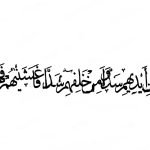 أَيْدِيهِمْ سَدًّا وَمِنْ خَلْفِهِمْ سَدًّا فَأَغْشَيْنَاهُمْ